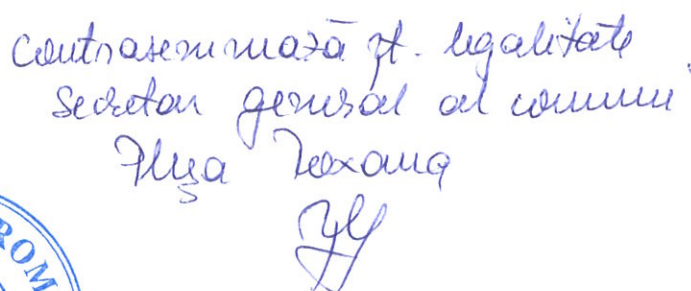 Contrasemnează pt. legalitate
Secretar general al comunei
Roxana
ROM